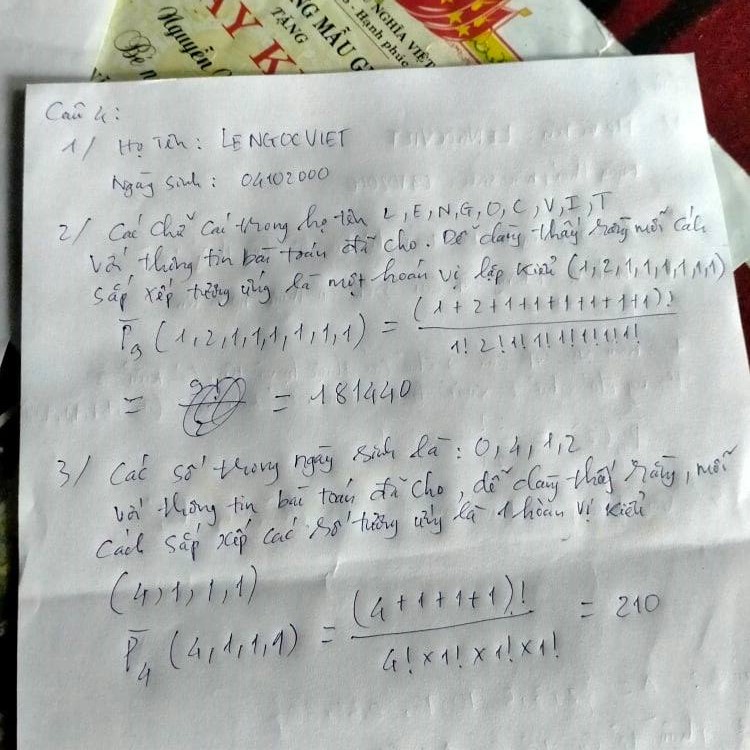 NGHĨA VIỆT
- Hạnh phúc
TẶNG
NG MẪU G
ẤY K
Bé n
Nguyễn
Câu 4:
1/ Họ tên: LENGOCVIET
Ngày sinh: 04102000
2/ Các chữ cái trong họ tên L, E, N, G, O, C, V, I, T
Với thông tin bài toán đã cho. Dễ dàng thấy rằng mỗi cách
sắp xếp tương ứng là một hoán vị lặp kiểu (1,2,1,1,1,1,1,1,1)
P̅₉ (1,2,1,1,1,1,1,1,1) = (1+2+1+1+1+1+1+1+1)! / 1! 2! 1! 1! 1! 1! 1! 1!
= = 181440
3/ Các số trong ngày sinh là: 0, 4, 1, 2
với thông tin bài toán đã cho, dễ dàng thấy rằng, mỗi
cách sắp xếp các số tương ứng là 1 hoàn vị kiểu
(4,1,1,1)
P̅₄ (4,1,1,1) = (4+1+1+1)! / 4! × 1! × 1! × 1! = 210